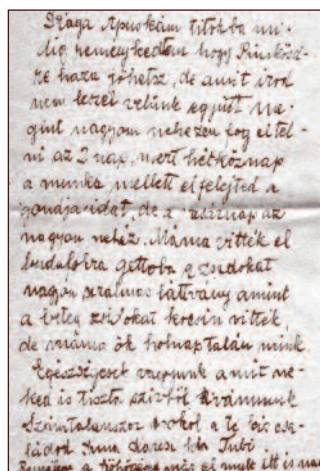 Drága Apuskám titokba mi-
dig reménykedtem hogy Pünkösd-
re haza jöhetsz, de amit irod
nem leszel velünk együtt me-
gint nagyon nehezen fog eltel-
ni az 2 nap, mert hétköznap
a munka mellett elfelejted a
gondjaidat, de a vasárnap az
nagyon nehéz. Máma vitték el
gettoba a zsidokat
nagyon szalmas látvány amint
a beteg zsidokat kocsin vitték,
de máma ők holnap talán mink.
Egészségesek vagyunk amit ne-
ked is tiszta szivből kivánunk
Számtalanszor csokol a te kis csa-
ládod